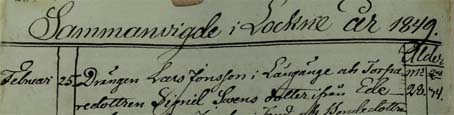 Sammanvigde i Lockne år 1849.
Ålder
Februari 25. Drängen Lars Jonsson i Långänge och Torpa
redottren Signil Svens dotter ifrån Ede 28.